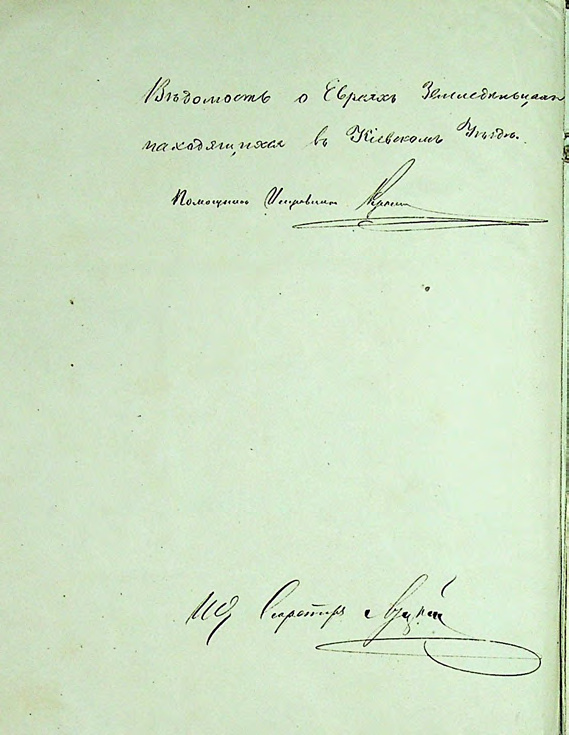 Вѣдомость о Евреяхъ Земледѣльцахъ
находящихся въ Кіевскомъ Уѣздѣ.
Помощникъ Исправника
Секретарь